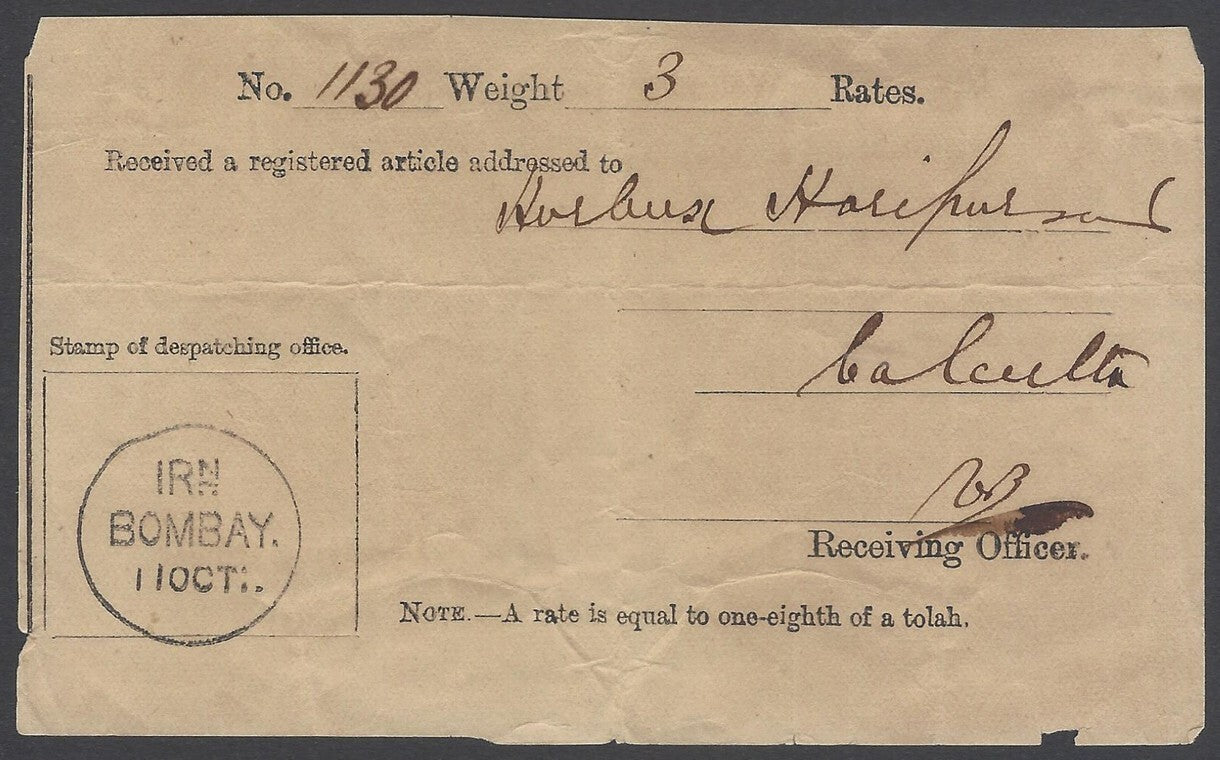 No. 1130 Weight 3 Rates.
Received a registered article addressed to
Hurbux Haripursad
Calcutta
Stamp of despatching office.
IRN
BOMBAY.
11OCT:.
Receiving Officer.
NOTE.—A rate is equal to one-eighth of a tolah.